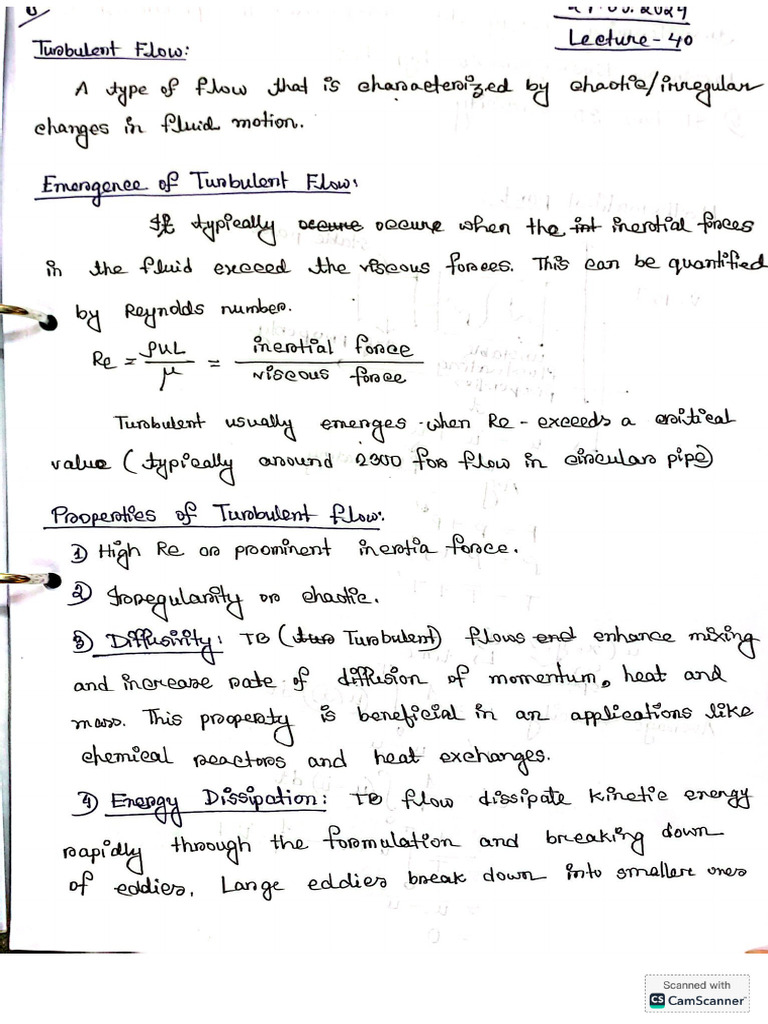 Lecture-40
Turbulent Flow:
A type of flow that is characterized by chaotic/irregular
changes in fluid motion.
Emergence of Turbulent Flow:
It typically occure occure when the int inertial forces
in the fluid exceed the viscous forces. This can be quantified
by Reynolds number.
Re = ρuL/μ = inertial force/viscous force
Turbulent usually emerges when Re-exceeds a critical
value (typically around 2300 for flow in circular pipe)
Properties of Turbulent flow:
1) High Re or prominent inertia force.
2) Irregularity or chaotic.
3) Diffusivity: TB (Turbulent) flows end enhance mixing
and increase rate of diffusion of momentum, heat and
mass. This property is beneficial in an applications like
chemical reactors and heat exchanges.
4) Energy Dissipation: TB flow dissipate kinetic energy
rapidly through the formulation and breaking down
of eddies. Large eddies break down into smaller ones
Scanned with
CS CamScanner